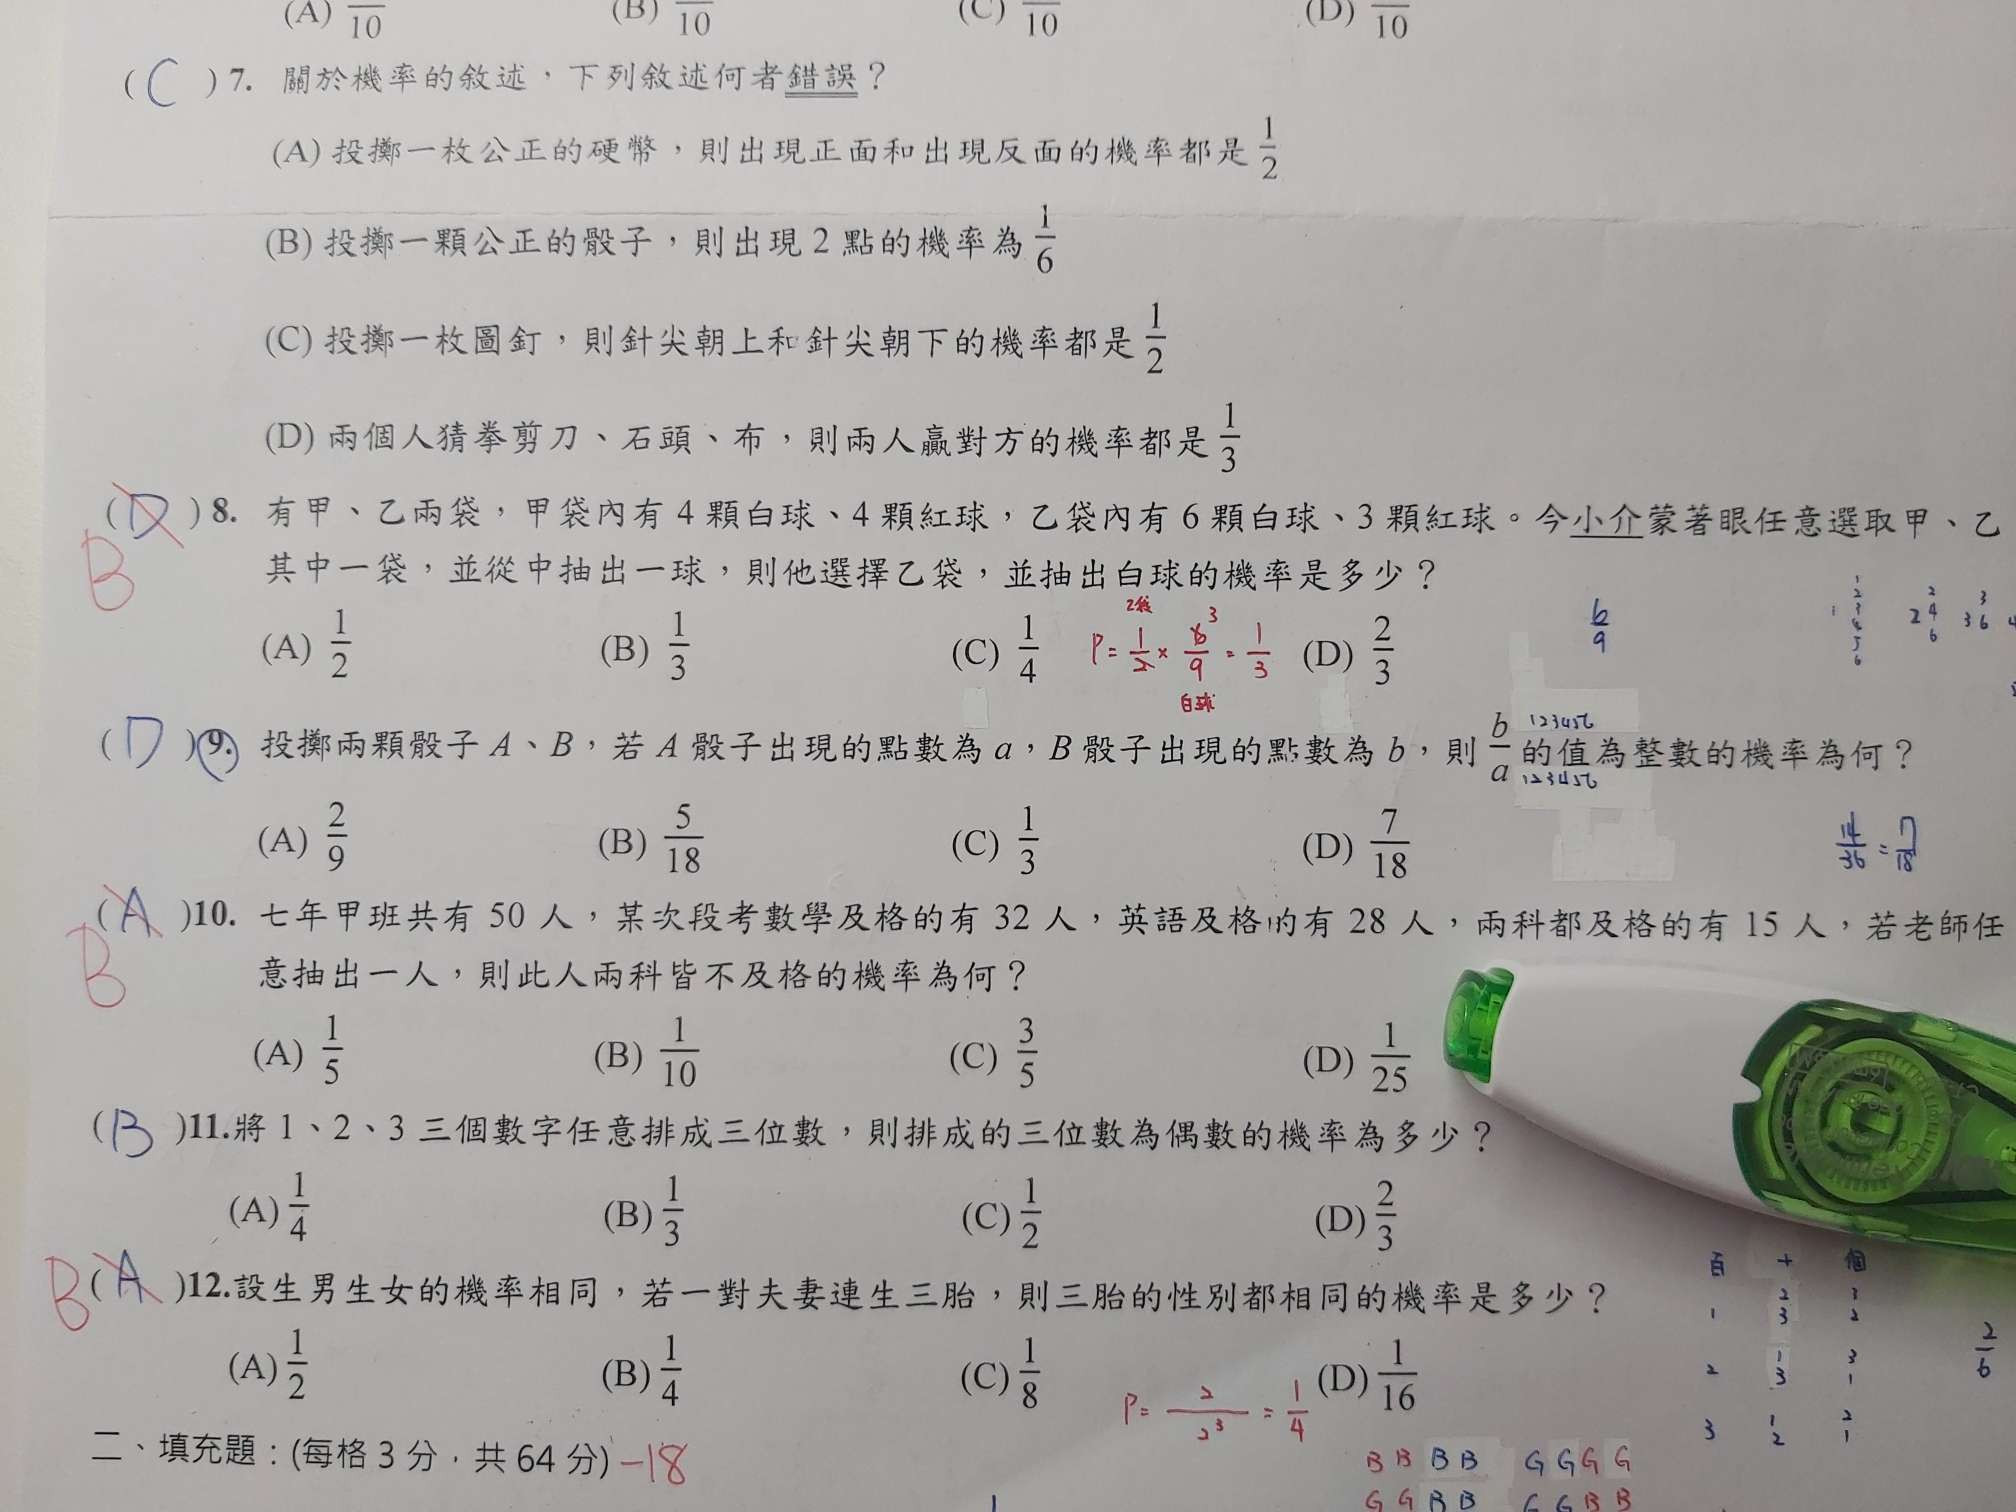 (A) 10 (B) 10 (C) 10 (D) 10
( C ) 7. 關於機率的敘述，下列敘述何者錯誤？
(A) 投擲一枚公正的硬幣，則出現正面和出現反面的機率都是 1/2
(B) 投擲一顆公正的骰子，則出現 2 點的機率為 1/6
(C) 投擲一枚圖釘，則針尖朝上和針尖朝下的機率都是 1/2
(D) 兩個人猜拳剪刀、石頭、布，則兩人贏對方的機率都是 1/3
( D ) 8. 有甲、乙兩袋，甲袋內有 4 顆白球、4 顆紅球，乙袋內有 6 顆白球、3 顆紅球。今小介蒙著眼任意選取甲、乙
B 其中一袋，並從中抽出一球，則他選擇乙袋，並抽出白球的機率是多少？
(A) 1/2 (B) 1/3 (C) 1/4 P = 1/2 × 6/9 = 1/3 (D) 2/3 6/9
白球
( D ) 9. 投擲兩顆骰子 A、B，若 A 骰子出現的點數為 a，B 骰子出現的點數為 b，則 b/a 的值為整數的機率為何？
123456
123456
(A) 2/9 (B) 5/18 (C) 1/3 (D) 7/18 14/36 = 7/18
( A ) 10. 七年甲班共有 50 人，某次段考數學及格的有 32 人，英語及格的有 28 人，兩科都及格的有 15 人，若老師任
B 意抽出一人，則此人兩科皆不及格的機率為何？
(A) 1/5 (B) 1/10 (C) 3/5 (D) 1/25
( B ) 11. 將 1、2、3 三個數字任意排成三位數，則排成的三位數為偶數的機率為多少？
(A) 1/4 (B) 1/3 (C) 1/2 (D) 2/3
百 十 個
1 2 3
3 2
2 1 3
3 1
3 1 2
2 1
2/6
B ( A ) 12. 設生男生女的機率相同，若一對夫妻連生三胎，則三胎的性別都相同的機率是多少？
(A) 1/2 (B) 1/4 (C) 1/8 P = 2/2³ = 1/4 (D) 1/16
二、填充題：(每格 3 分，共 64 分) -18
B B B B G G G G
G G B B G G B B